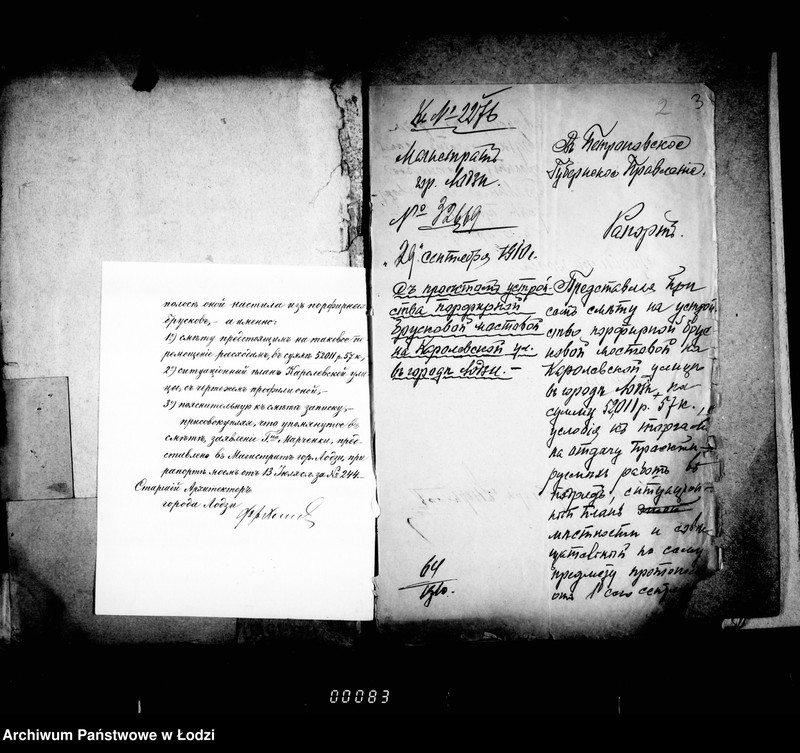 полосы оной настила изъ порфирныхъ
брусковъ, – а именно:
1) смѣту предстоящимъ на таковое
расходамъ, въ суммѣ 52011 р. 57 к.,
2) ситуаціонный планъ Каролевской ули
цы, съ чертежемъ профили оной, –
3) пояснительную къ смѣтѣ записку, –
присовокупляя, что упомянутое въ
смѣтѣ, заявленіе Г-на Марченки, пред-
ставлено въ Магистратъ гор. Лодзи, при
рапортѣ моемъ отъ 13 Іюля за № 244. –
Старшій Архитекторъ
города Лодзи
Кл № 2276
Магистратъ
гор. Лодзи.
№ 32669
„29" сентября 1910 г.
Съ проектомъ устрой
ства порфирной
брусковой мостовой
на Королевской ул.
въ городѣ Лодзи. –
64
1910.
2 3
Въ Петроковское
Губернское Правленіе.
Рапортъ.
Представляя при
семъ смѣту на устрой
ство порфирной брус
ковой мостовой на
Королевской улицѣ
въ городѣ Лодзи, на
сумму 52011 р. 57 к.,
условія къ торгамъ
на отдачу проекти-
руемыхъ работъ въ
подрядъ, ситуаціон-
ный планъ
мѣстности и
по сему
предмету протоколъ
отъ 1 сего
00083
Archiwum Państwowe w Łodzi